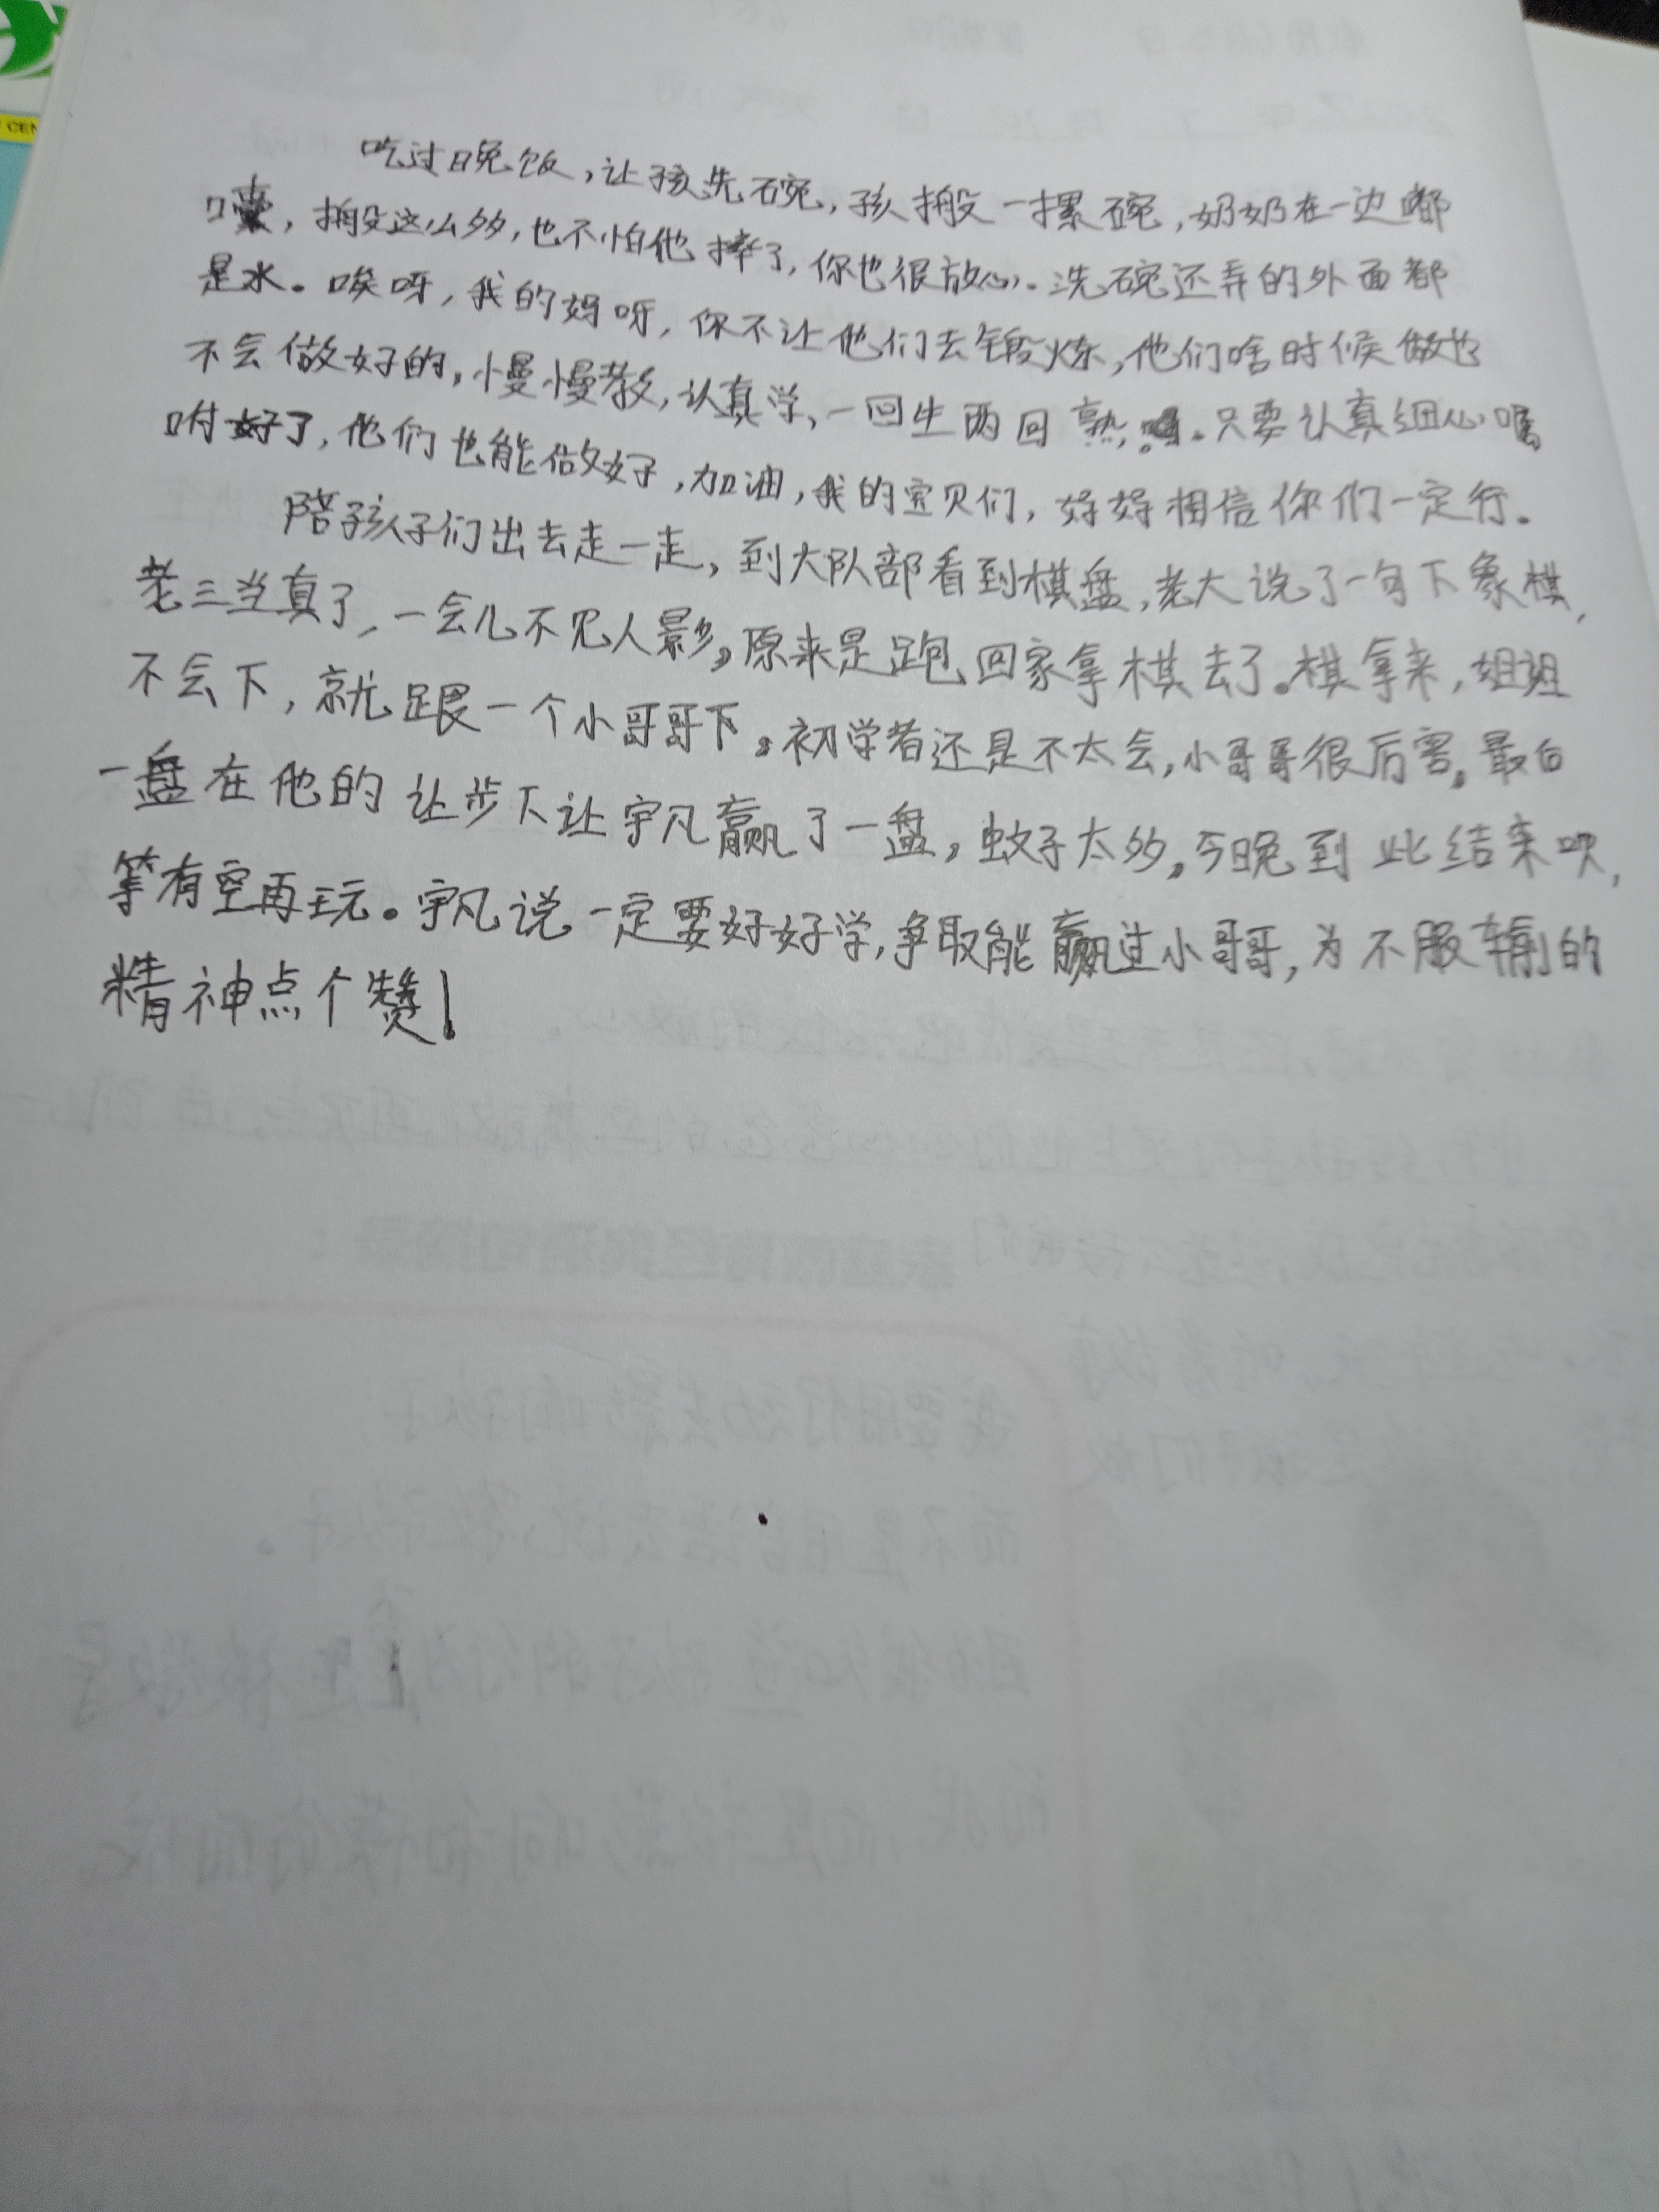 CEN
吃过晚饭，让孩先碗，孩搬一摞碗，奶奶在一边嘟
囔，搬这么多，也不怕他摔了，你也很放心。洗碗还弄的外面都
是水。唉呀，我的妈呀，你不让他们去锻炼，他们啥时候做也
不会做好的，慢慢教，认真学，一回生两回熟。只要认真细心嘱
咐好了，他们也能做好，加油，我的宝贝们，好好相信你们一定行。
陪孩子们出去走一走，到大队部看到棋盘，老大说了一句下象棋，
老三当真了，一会儿不见人影，原来是跑回家拿棋去了。棋拿来，姐姐
不会下，就跟一个小哥哥下。初学者还是不太会，小哥哥很厉害，最后
一盘在他的让步下让宇凡赢了一盘，蚊子太多，今晚到此结束呗，
等有空再玩。宇凡说一定要好好学，争取能赢过小哥哥，为不服输的
精神点个赞！